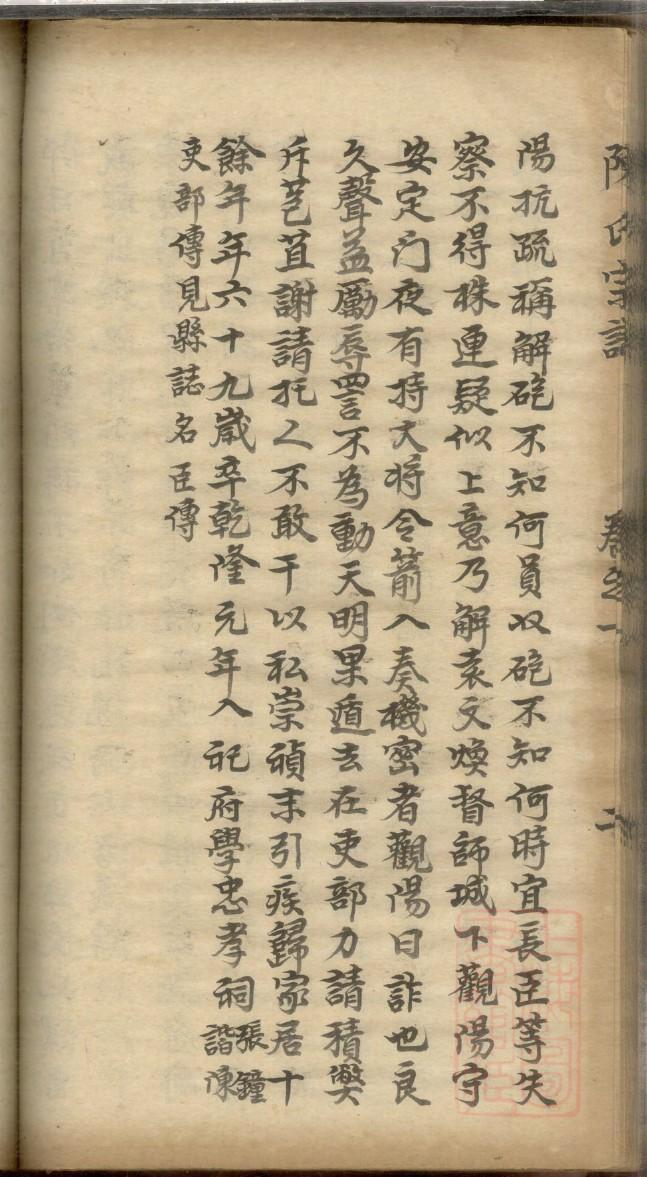 陳氏宗譜 卷之一 二
陽抗疏稱解砲不知何員収砲不知何時宜長臣等失
察不得株連疑似上意乃解袁文煥督師城下觀陽守
安定门夜有持大将令箭入奏機密者觀陽曰詐也良
久聲益勵辱詈不為動天明果遁去在吏部力請積獘
斥苞苴謝請托人不敢干以私崇禎末引疾歸家居十
餘年年六十九歲卒乾隆元年入祀府學忠孝祠張鐘諧陳
吏部傳見縣誌名臣傳